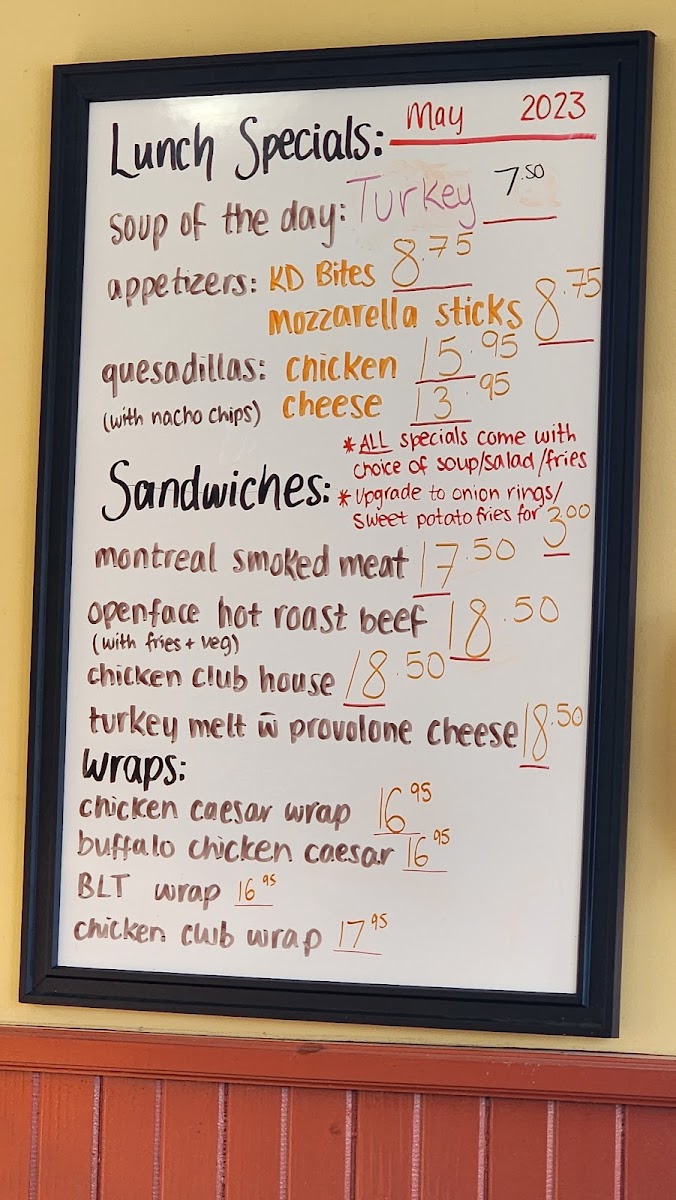 Lunch Specials: May 2023
soup of the day: Turkey 7.50
appetizers: KD Bites 8.75
mozzarella sticks 8.75
quesadillas: chicken 15.95
(with nacho chips) cheese 13.95
*ALL specials come with
choice of soup/salad/fries
Sandwiches: *upgrade to onion rings/
sweet potato fries for 3.00
montreal smoked meat 17.50
openface hot roast beef 18.50
(with fries + veg)
chicken club house 18.50
turkey melt w̄ provolone cheese 18.50
wraps:
chicken caesar wrap 16.95
buffalo chicken caesar 16.95
BLT wrap 16.95
chicken club wrap 17.95